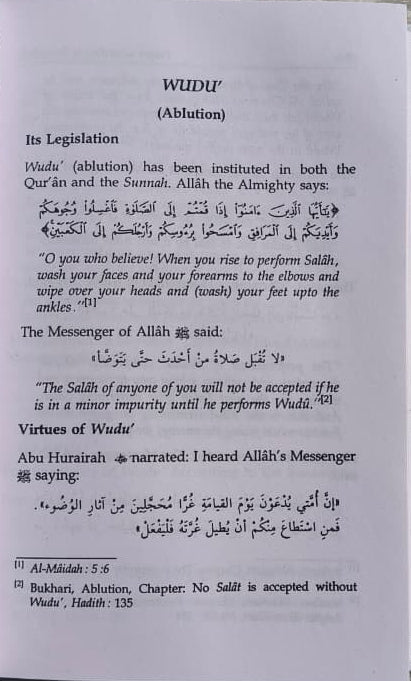 WUDU'
(Ablution)
Its Legislation
Wudu' (ablution) has been instituted in both the
Qur'ân and the Sunnah. Allâh the Almighty says:
﴿يَٰٓأَيُّهَا ٱلَّذِينَ ءَامَنُوٓا۟ إِذَا قُمْتُمْ إِلَى ٱلصَّلَوٰةِ فَٱغْسِلُوا۟ وُجُوهَكُمْ
وَأَيْدِيَكُمْ إِلَى ٱلْمَرَافِقِ وَٱمْسَحُوا۟ بِرُءُوسِكُمْ وَأَرْجُلَكُمْ إِلَى ٱلْكَعْبَيْنِ﴾
"O you who believe! When you rise to perform Salâh,
wash your faces and your forearms to the elbows and
wipe over your heads and (wash) your feet upto the
ankles."[1]
The Messenger of Allâh ﷺ said:
«لَا تُقْبَلُ صَلَاةُ مَنْ أَحْدَثَ حَتَّى يَتَوَضَّأَ»
"The Salâh of anyone of you will not be accepted if he
is in a minor impurity until he performs Wudû."[2]
Virtues of Wudu'
Abu Hurairah narrated: I heard Allâh's Messenger
ﷺ saying:
«إِنَّ أُمَّتِي يُدْعَوْنَ يَوْمَ القِيَامَةِ غُرًّا مُحَجَّلِينَ مِنْ آثَارِ الوُضُوءِ».
فَمَنِ اسْتَطَاعَ مِنْكُمْ أَنْ يُطِيلَ غُرَّتَهُ فَلْيَفْعَلْ»
[1] Al-Mâidah : 5 :6
[2] Bukhari, Ablution, Chapter: No Salât is accepted without
Wudu', Hadith : 135